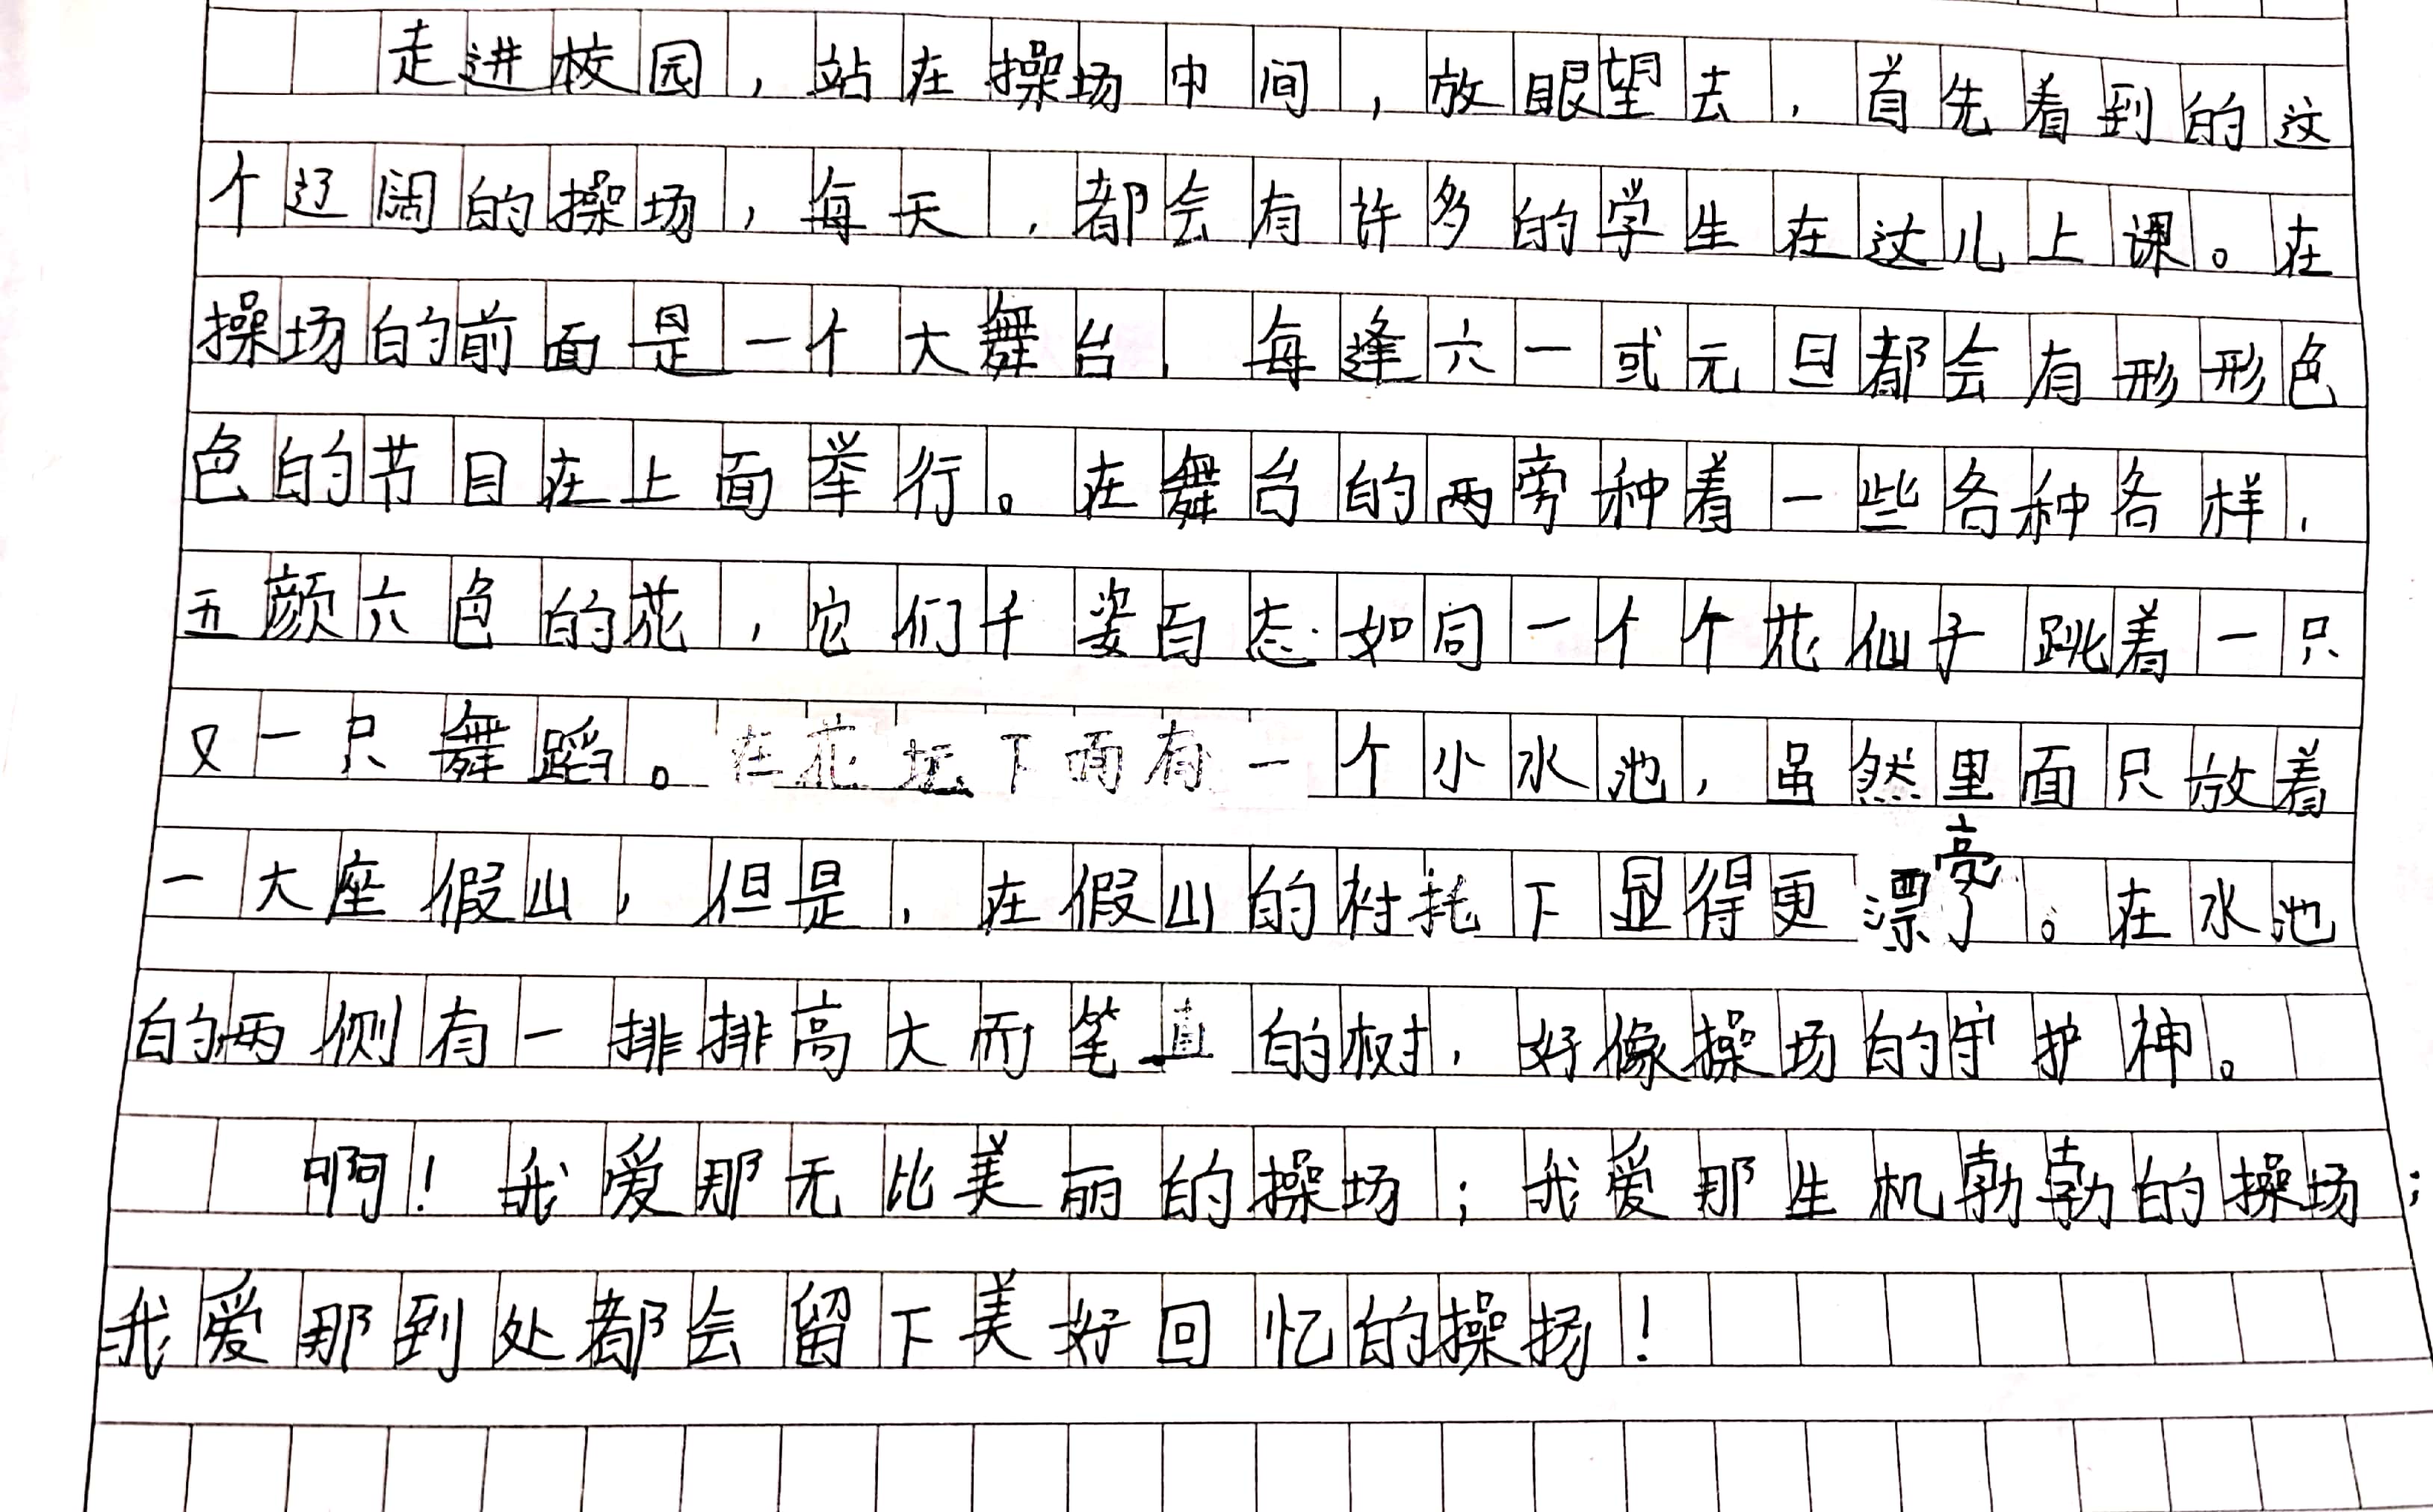 走进校园，站在操场中间，放眼望去，首先看到的这
个辽阔的操场，每天，都会有许多的学生在这儿上课。在
操场的前面是一个大舞台，每逢六一或元旦都会有形形色
色的节目在上面举行。在舞台的两旁种着一些各种各样，
五颜六色的花，它们千姿百态如同一个个花仙子跳着一只
又一只舞蹈。在花坛下面有一个小水池，虽然里面只放着
一大座假山，但是，在假山的衬托下显得更漂亮了。在水池
的两侧有一排排高大而笔直的树，好像操场的守护神。
啊！我爱那无比美丽的操场；我爱那生机勃勃的操场；
我爱那到处都会留下美好回忆的操扬！